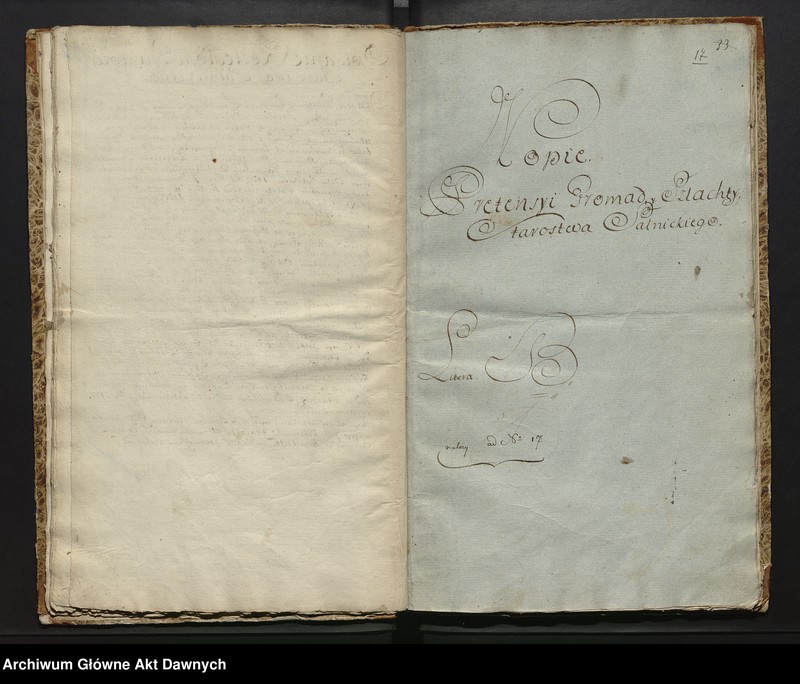 17 33
Kopie.
Pretensyi Gromad, Szlachty,
Starostwa Salnickiego.
Litera B
należy ad No 17
Archiwum Główne Akt Dawnych